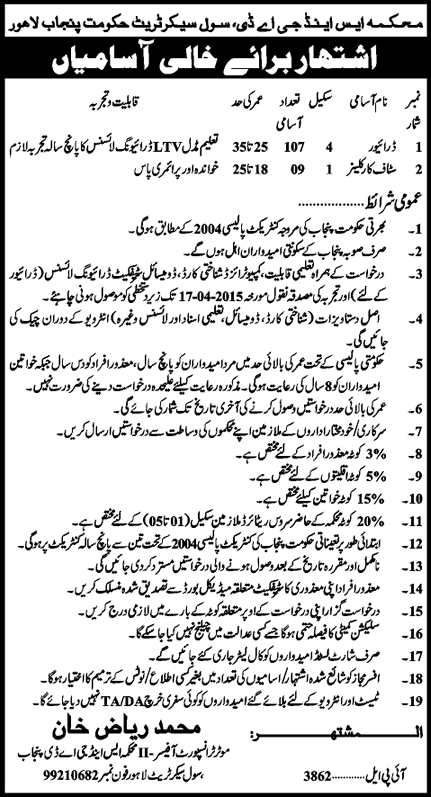 محکمہ ایس اینڈ جی اے ڈی، سول سیکرٹریٹ حکومت پنجاب لاہور
اشتہار برائے خالی آسامیاں
نمبر شمار نام آسامی سکیل تعداد آسامی عمر کی حد قابلیت و تجربہ
1 ڈرائیور 4 107 25 تا 35 تعلیم مڈل LTV ڈرائیونگ لائسنس کا پانچ سالہ تجربہ لازم
2 سٹاف کار کلینر 1 09 18 تا 25 خواندہ اور پرائمری پاس
عمومی شرائط..................
1- بھرتی حکومت پنجاب کی مروجہ کنٹریکٹ پالیسی 2004 کے مطابق ہوگی۔
2- صرف صوبہ پنجاب کے سکونتی امیدواران اہل ہوں گے۔
3- درخواست کے ہمراہ تعلیمی قابلیت، کمپیوٹرائزڈ شناختی کارڈ، ڈومیسائل سرٹیفکیٹ ڈرائیونگ لائسنس (ڈرائیور
کے لئے) اور تجربہ کی مصدقہ نقول مورخہ 17-04-2015 تک زیر دستخطی کو موصول ہونی چاہئے۔
4- اصل دستاویزات (شناختی کارڈ، ڈومیسائل، تعلیمی اسناد اور لائسنس وغیرہ) انٹرویو کے دوران چیک کی
جائیں گی۔
5- حکومتی پالیسی کے تحت عمر کی بالائی حد میں مرد امیدواران کو پانچ سال، معذور افراد کو دس سال جبکہ خواتین
امیدواران کو 8 سال کی رعایت ہوگی۔ مذکورہ رعایت کیلئے علیحدہ درخواست دینے کی ضرورت نہیں۔
6- عمر کی بالائی حد درخواستیں وصول کرنے کی آخری تاریخ تک شمار کی جائے گی۔
7- سرکاری/خود مختار اداروں کے ملازمین اپنے محکموں کی وساطت سے درخواستیں ارسال کریں۔
8- 3% کوٹہ معذور افراد کے لئے مختص ہے۔
9- 5% کوٹہ اقلیتوں کے لئے مختص ہے۔
10- 15% کوٹہ خواتین کیلئے مختص ہے۔
11- 20% کوٹہ محکمہ کے حاضر سروس ریٹائرڈ ملازمین سکیل (01 تا 05) کے لئے مختص ہے۔
12- ابتدائی طور پر تعیناتی حکومت پنجاب کی کنٹریکٹ پالیسی 2004 کے تحت تین سے پانچ سالہ کنٹریکٹ پر ہوگی۔
13- نامکمل اور مقررہ تاریخ کے بعد وصول ہونے والی درخواستیں مسترد کردی جائیں گی۔
14- معذور افراد اپنی معذوری کا سرٹیفکیٹ متعلقہ میڈیکل بورڈ سے تصدیق شدہ منسلک کریں۔
15- درخواست گزار اپنی درخواست کے اوپر متعلقہ کوٹہ کے بارے میں لازمی درج کریں۔
16- سلیکشن کمیٹی کا فیصلہ حتمی ہوگا جسے کسی عدالت میں چیلنج نہیں کیا جاسکے گا۔
17- صرف شارٹ لسٹڈ امیدواروں کو کال لیٹر جاری کئے جائیں گے۔
18- افسر مجاز کو شائع شدہ اشتہار/اسامیوں کی تعداد میں بغیر کسی اطلاع/نوٹس کے ترمیم کا اختیار ہوگا۔
19- ٹیسٹ اور انٹرویو کے لئے بلائے گئے امیدواروں کو کوئی سفری خرچ TA/DA نہیں دیا جائے گا۔
المشتہر: محمد ریاض خان
موٹر ٹرانسپورٹ آفیسر-II محکمہ ایس اینڈ جی اے ڈی پنجاب
، سول سیکرٹریٹ لاہور فون نمبر 99210682
آئی پی ایل............3862